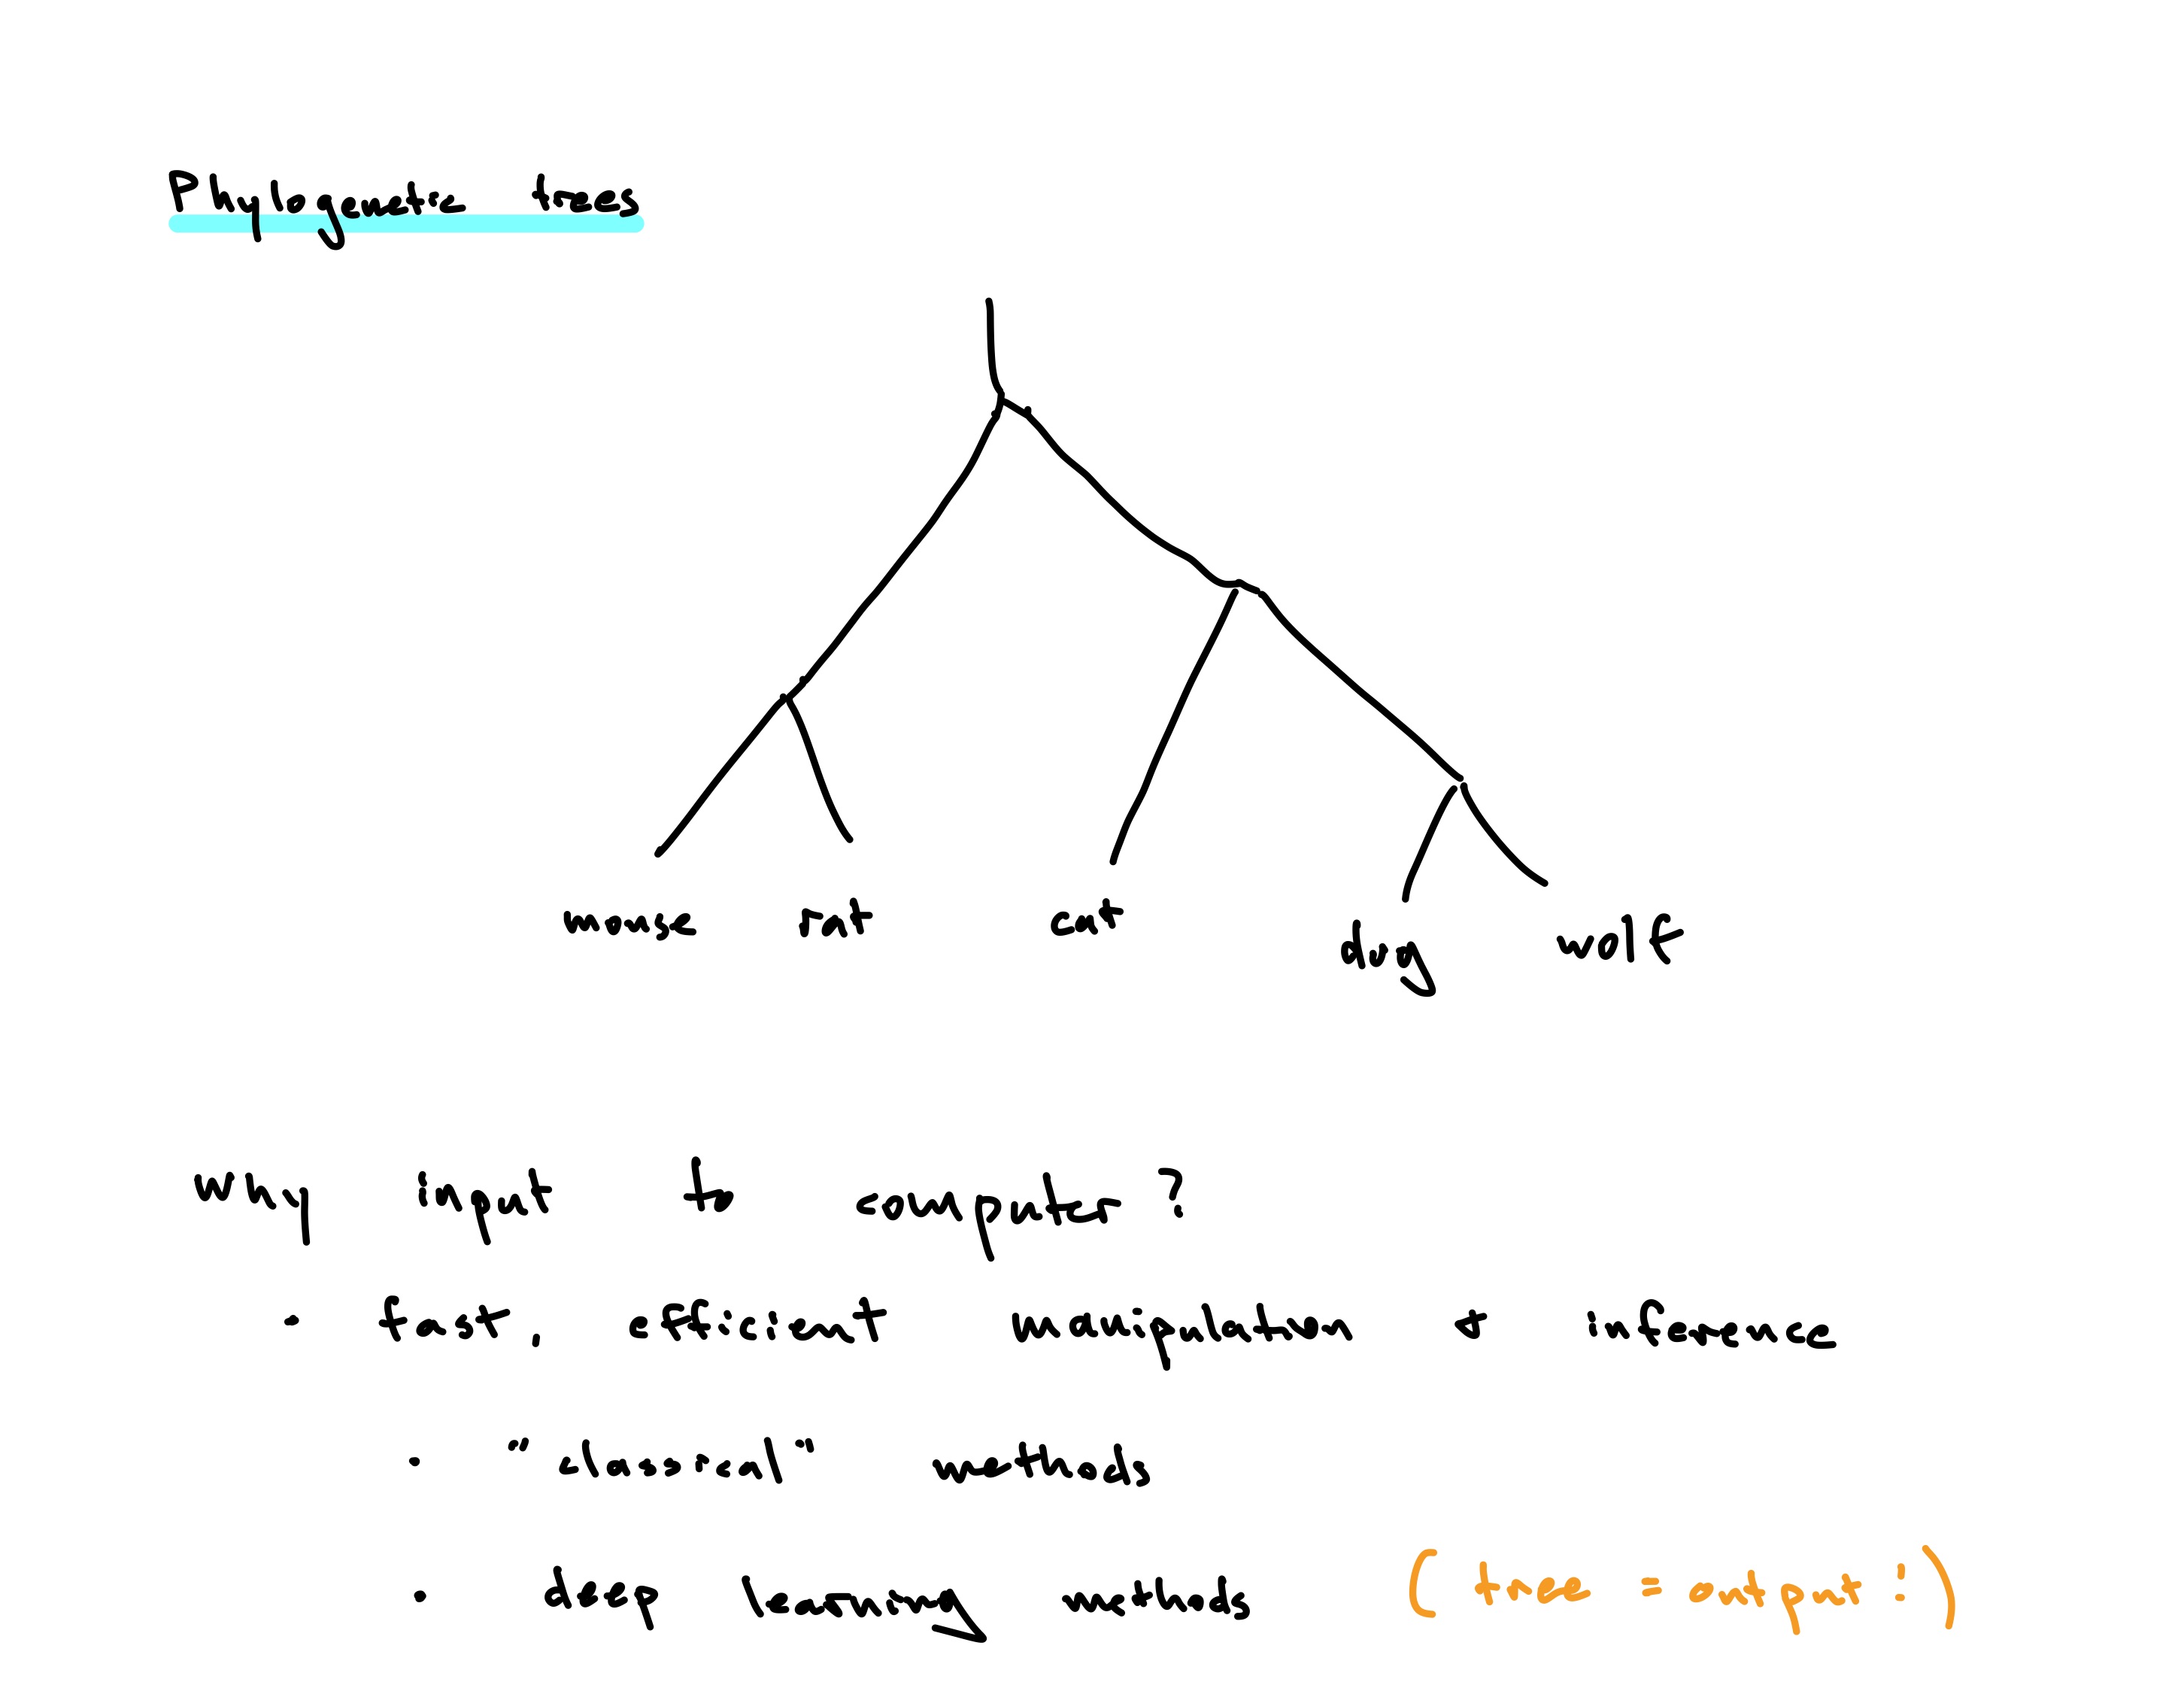 Phylogenetic trees
mouse rat cat dog wolf
Why input to computer?
- fast, efficient manipulation + inference
- "classical" methods
- deep learning methods (tree = output!)